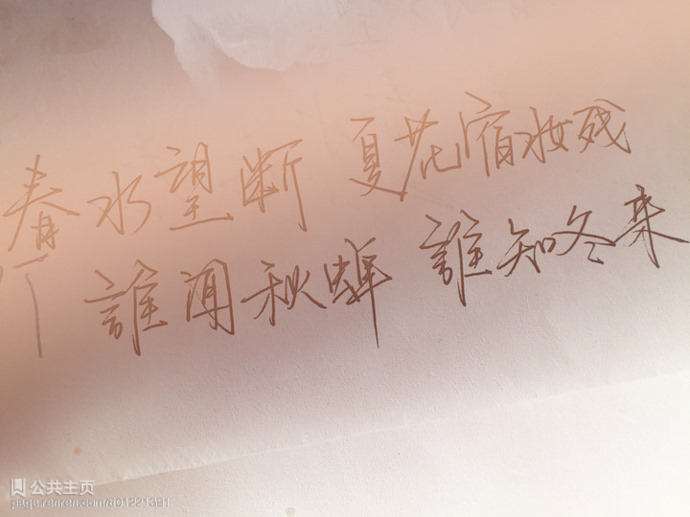 春水望断 夏花宿妆残
誰闻秋蝉 誰知冬来
公共主页
page.renren.com/601221391